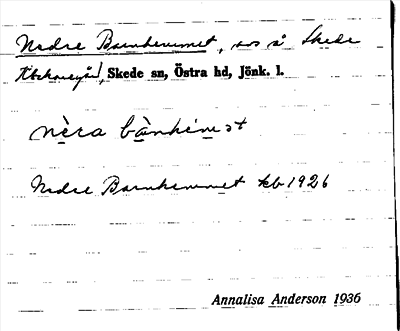 Nedre Barnhemmet, sos å Skede
, Skede sn, Östra hd, Jönk. l.
nèra bànhèmət
Nedre Barnhemmet kb 1926
Annalisa Anderson 1936